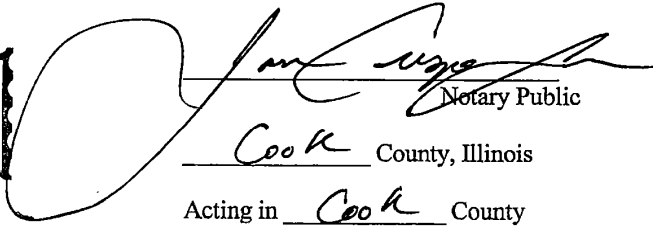 Notary Public
Cook County, Illinois
Acting in Cook County